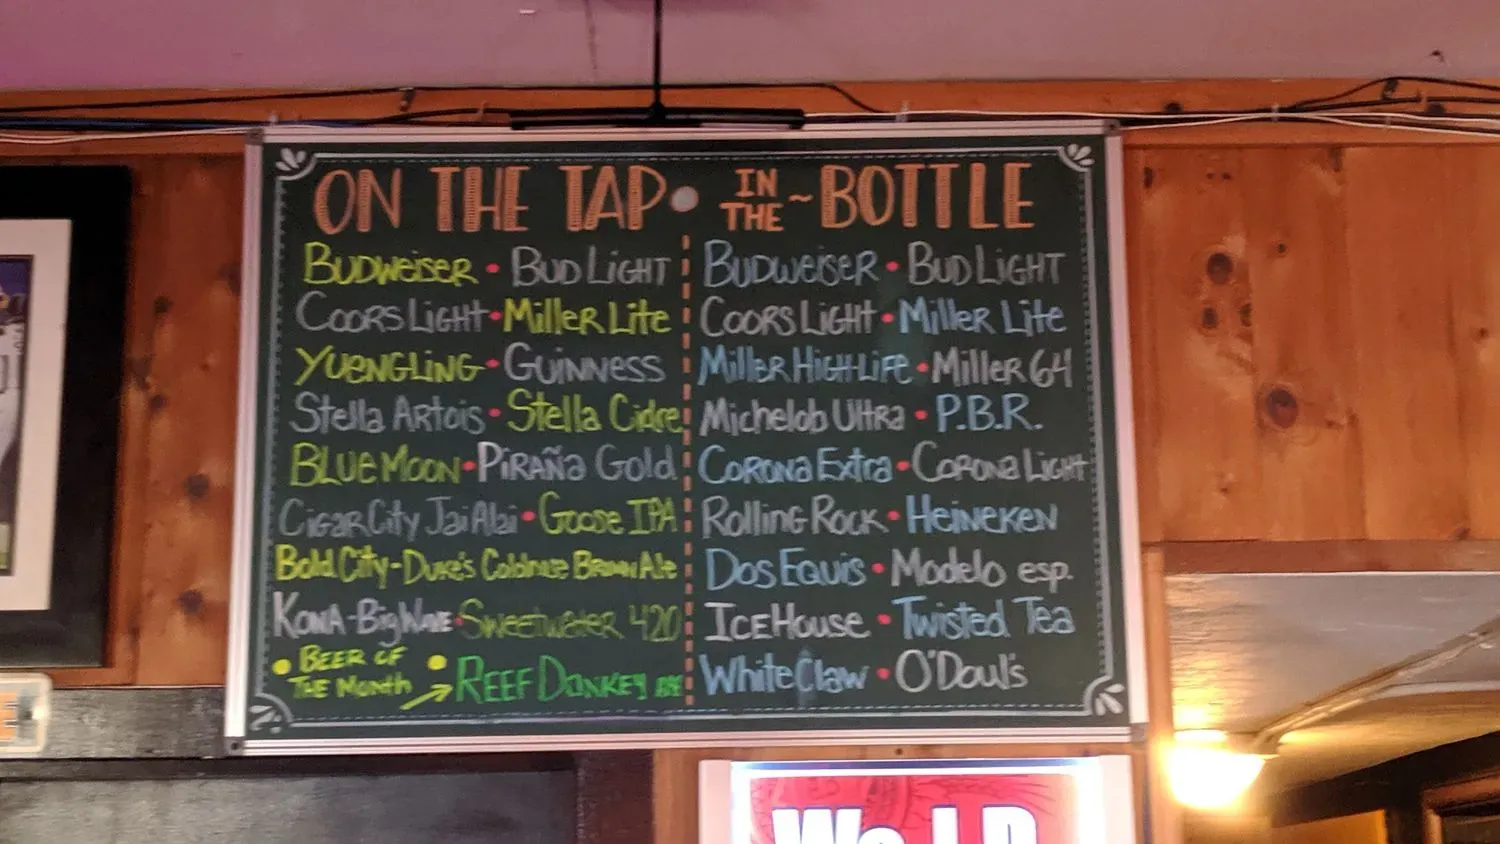 ON THE TAP • IN THE ~ BOTTLE
BUDWEISER • BUD LIGHT
COORS LIGHT • MILLER LITE
YUENGLING • GUINNESS
Stella Artois • Stella Cidre
BLUE MOON • PIRAÑA Gold
CIGAR CITY Jai Alai • Goose IPA
Bold City - Duke's Coldnose Brown Ale
KONA - Big Wave • Sweetwater 420
• BEER OF THE MONTH • REEF DONKEY
BUDWEISER • BUD LIGHT
COORS LIGHT • MILLER LITE
MILLER HIGH LIFE • MILLER 64
Michelob Ultra • P.B.R.
CORONA Extra • CORONA Light
Rolling Rock • HEINEKEN
DOS EQUIS • Modelo esp.
ICEHOUSE • Twisted Tea
White Claw • O'Doul's